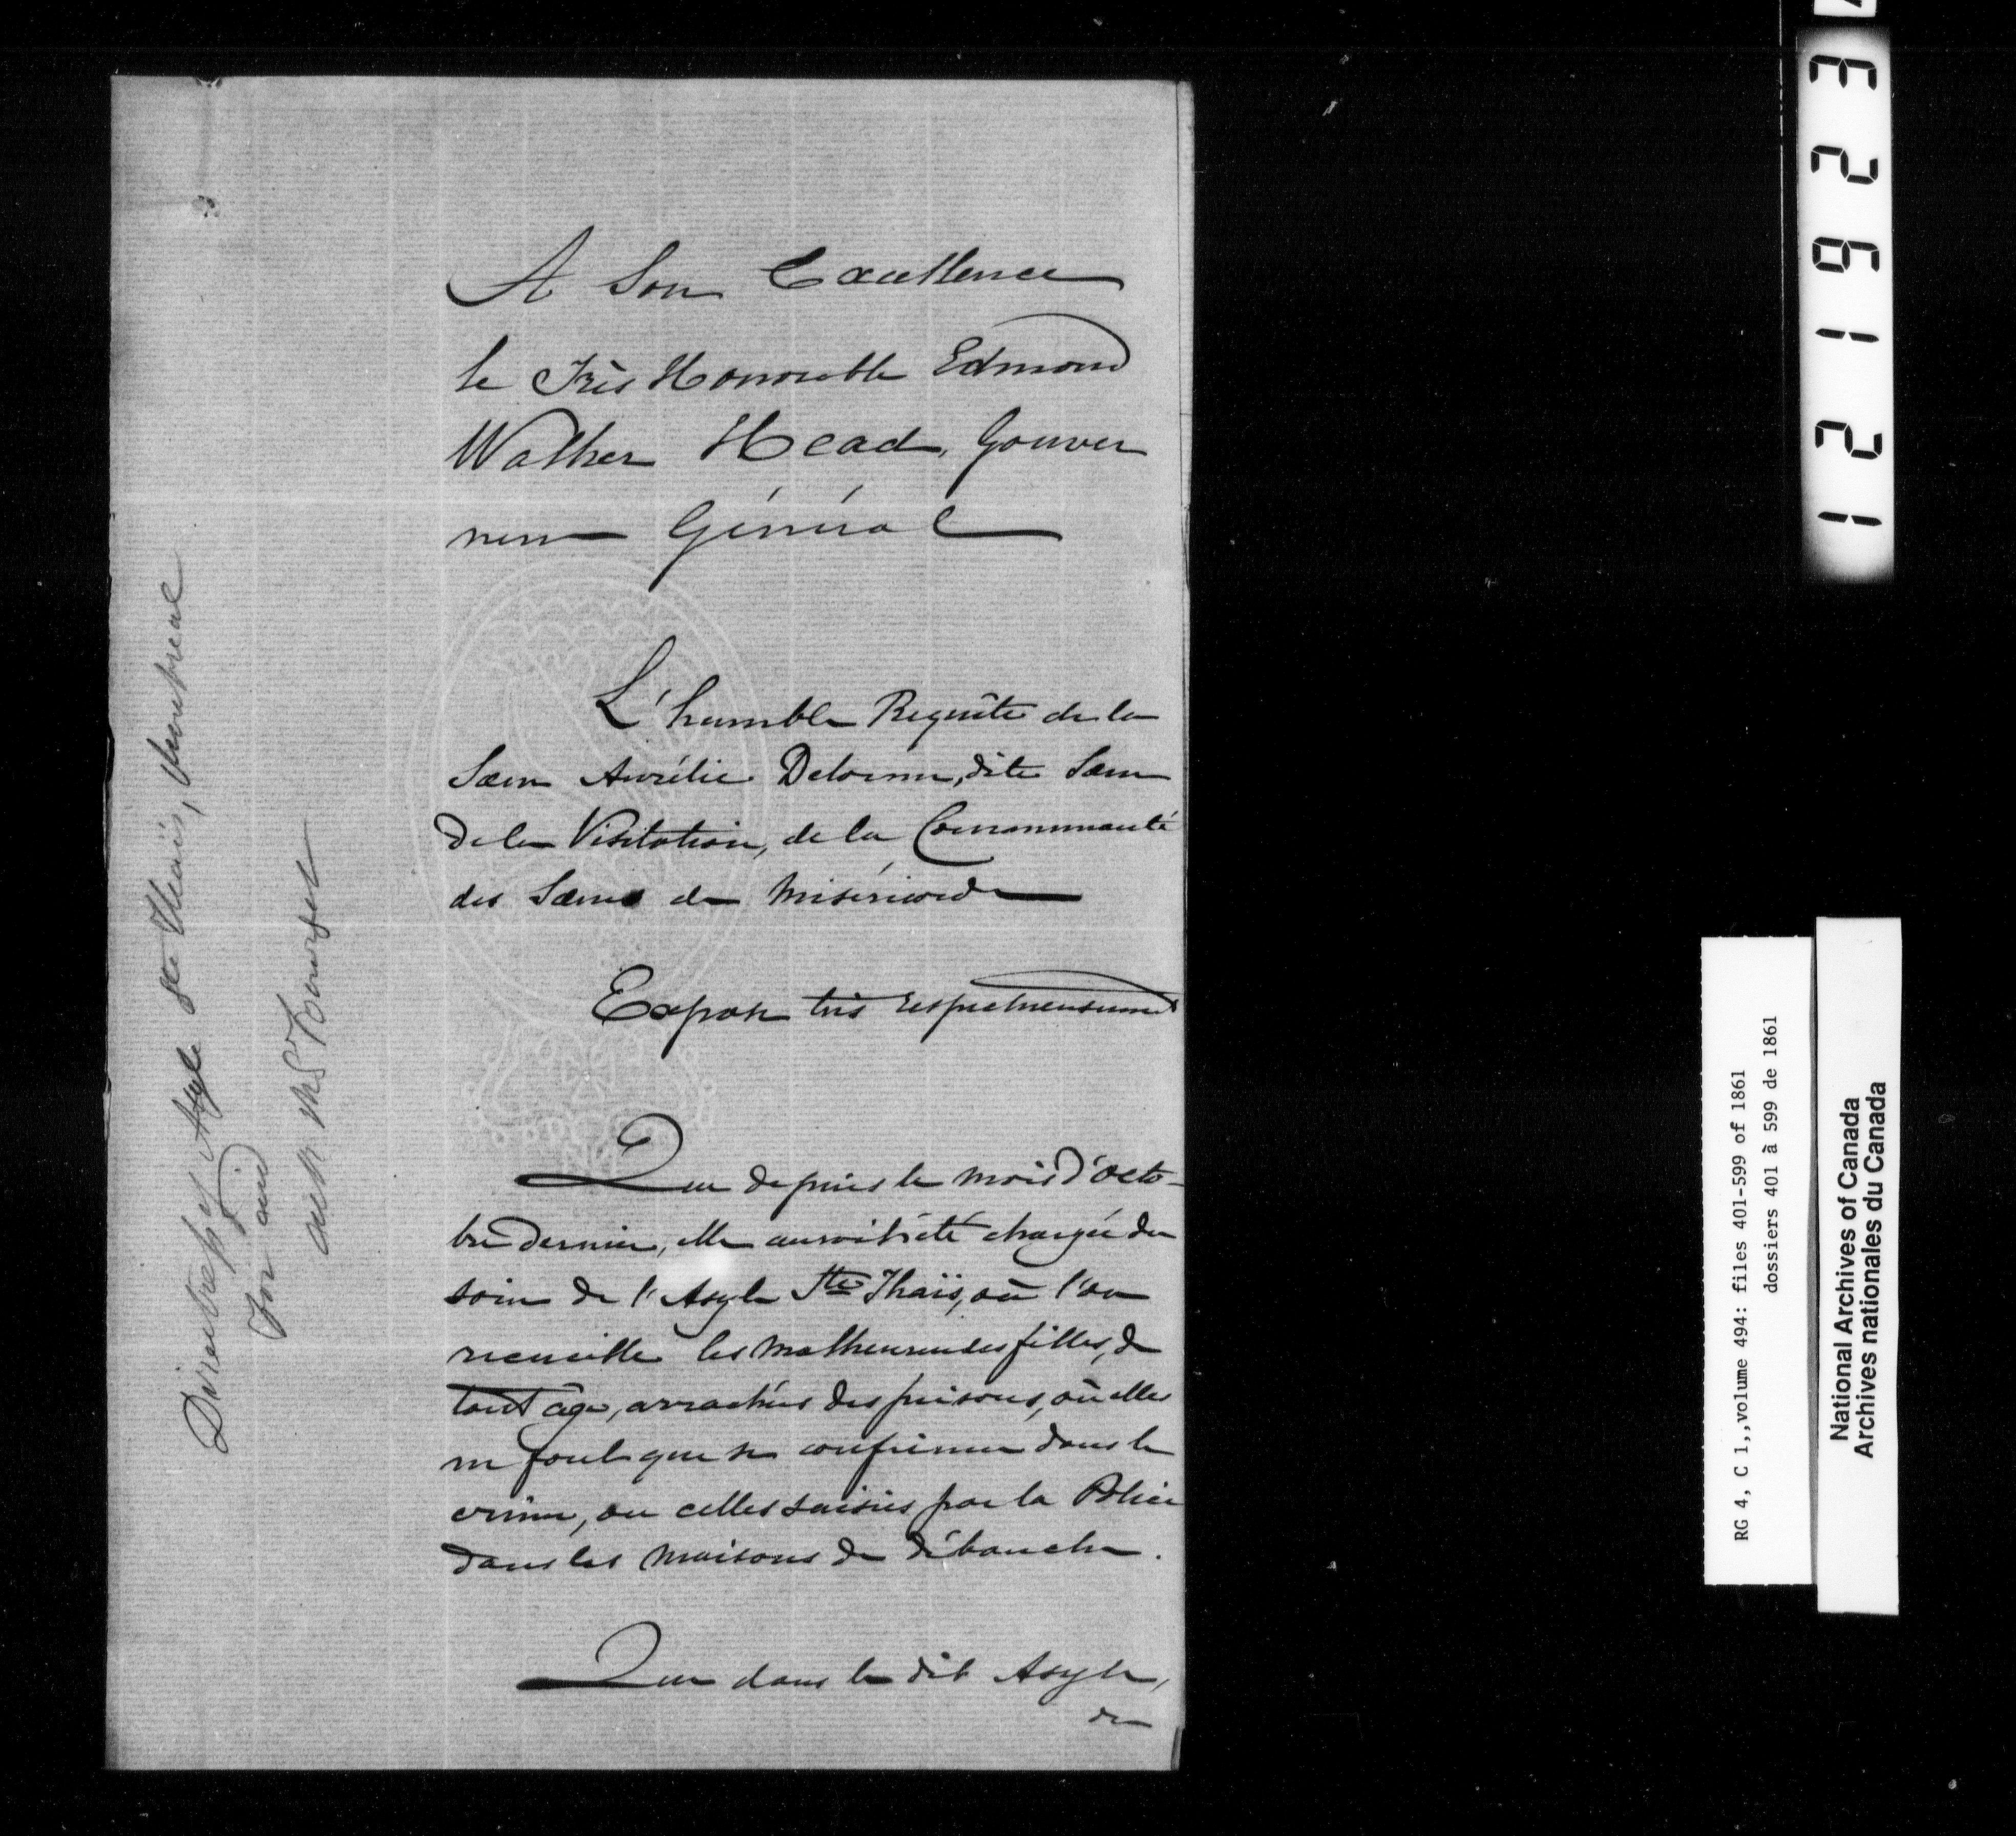 A Son Excellence
le Très Honorable Edmond
Walker Head, Gouver
neur Général
L'humble Requête de la
Sœur Aurélie Delorme, dite Sœur
de la Visitation, de la Communauté
des Sœurs de Miséricorde
Expose très respectueusement
Que depuis le mois d'octo-
bre dernier, elle aurait été chargée du
soin de l'Asyle Ste Thaïs, où l'on
recueille les malheureuses filles, de
tout âge, arrachées des prisons, où elles
ne font que se confirmer dans le
crime, ou celles saisies par la Police
dans les maisons de débauche.
Que dans le dit Asyle,
de
Directress of Asyle Ste Thaïs, Montreal
For aid
ask Mr
123
1 2 1 9 2 3
RG 4, C 1,,volume 494: files 401-599 of 1861
dossiers 401 à 599 de 1861
National Archives of Canada
Archives nationales du Canada